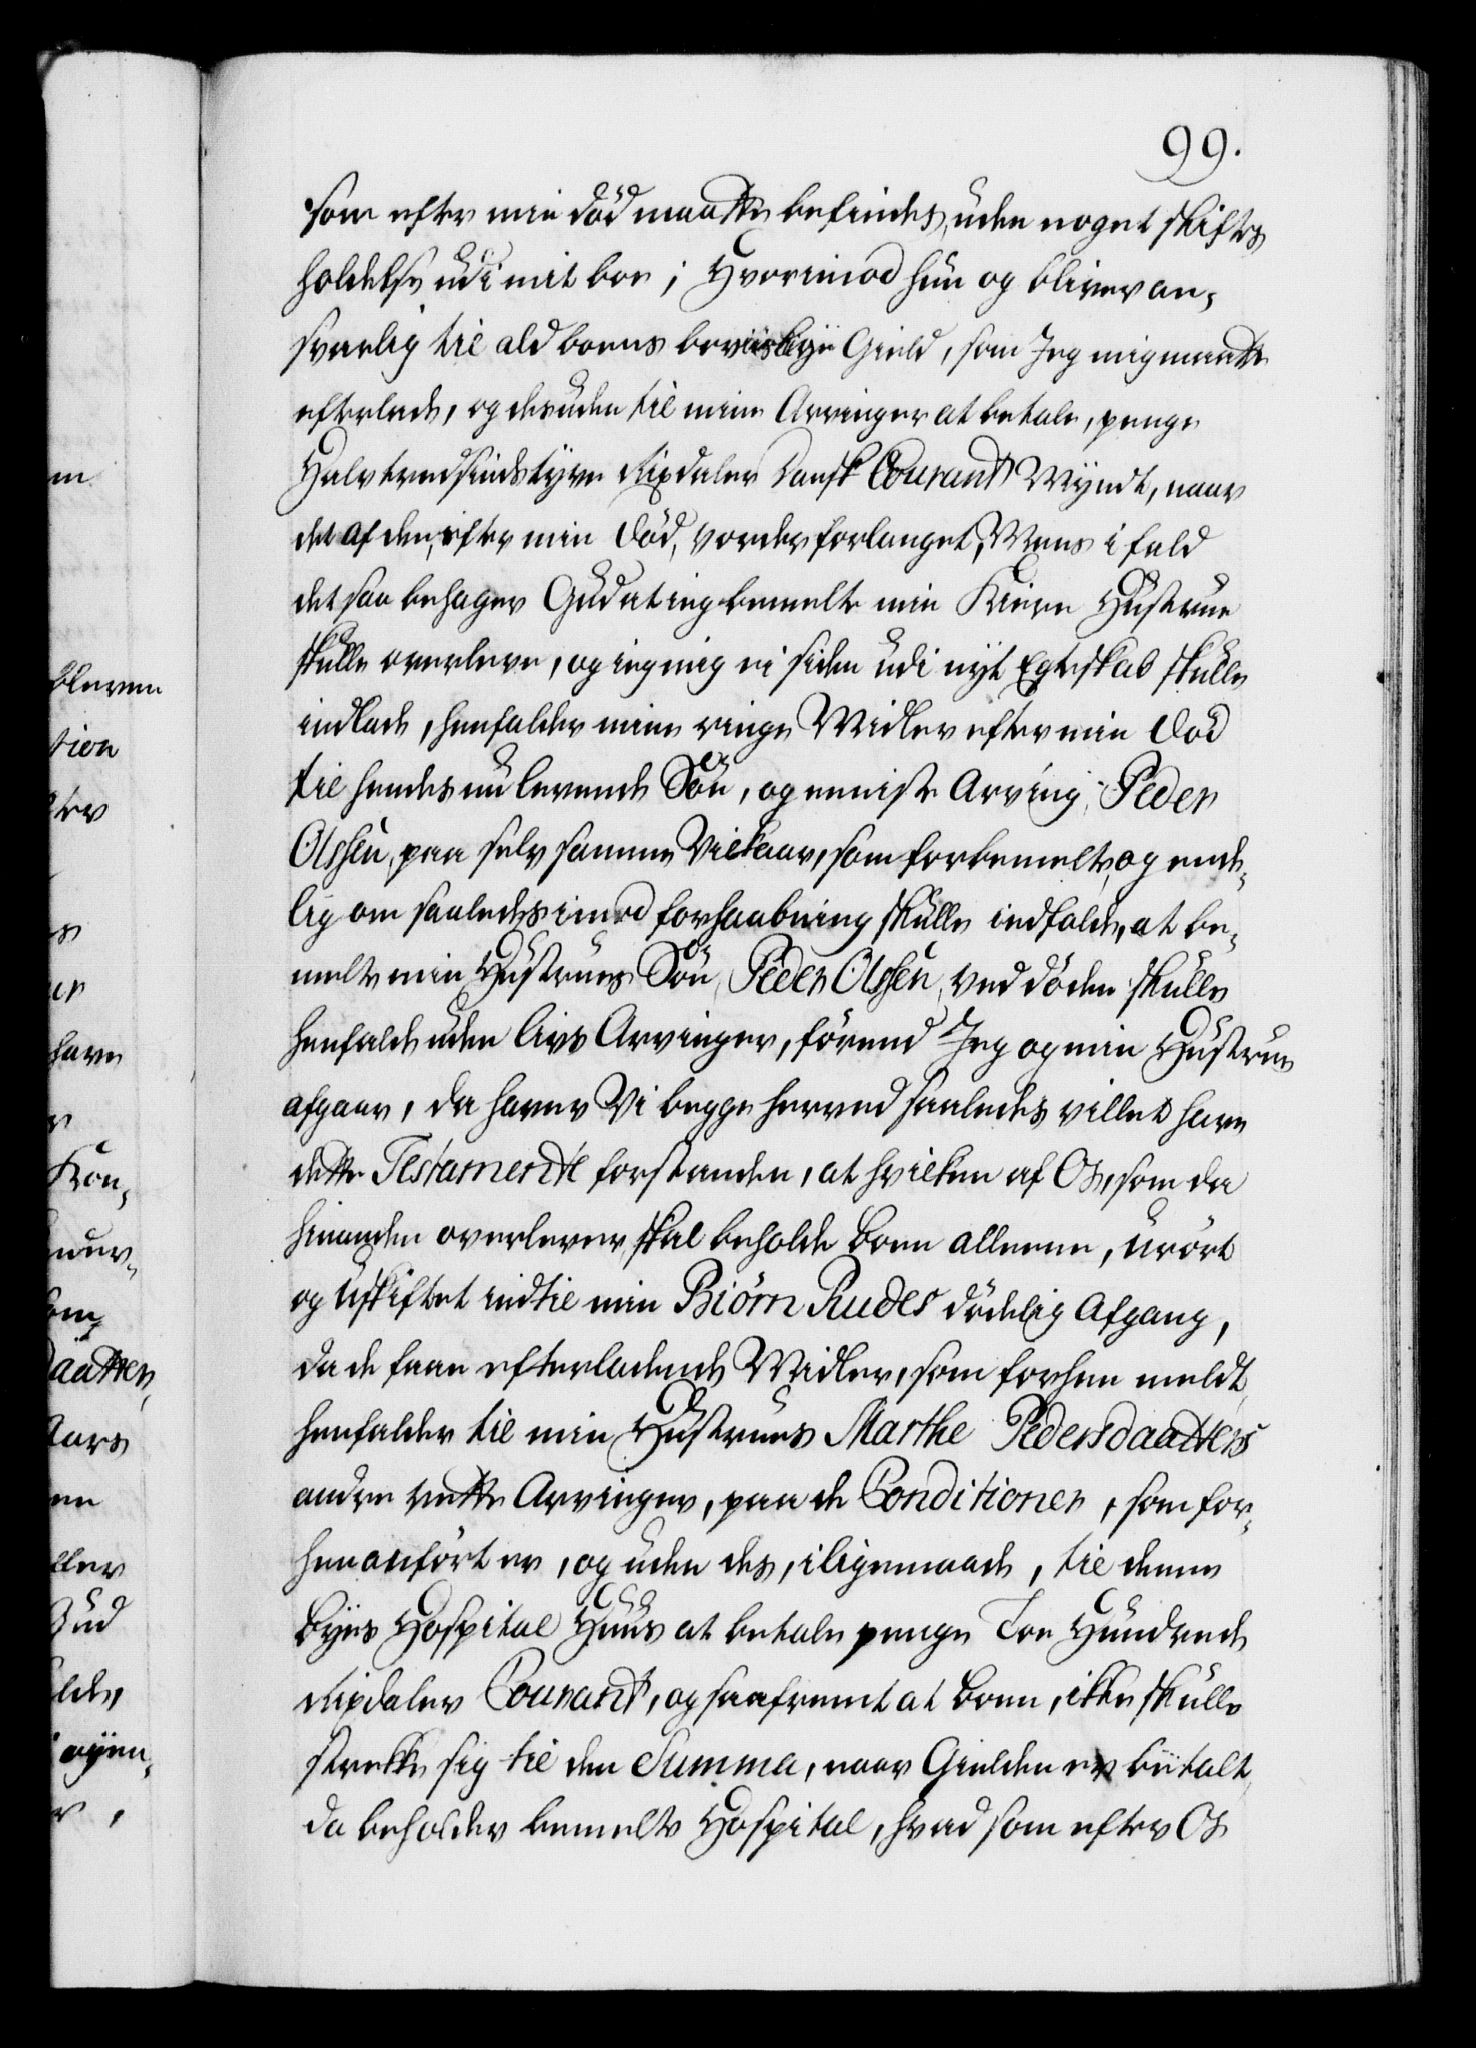 99.
som efter min död maatte befindes, uden noget Skiftes
holdelse udi mit boe; Hvorimod hun og bliver an-
svarlig til ald boens beviislige Gield, som Jeg mig maatte
efterlade, og desuden til mine Arvinger at betale, penge
Halvtredsindstyve Rixdaler Dansk Courant Myndt, naar
det af dem, efter min Död, vorder forlanget, Mens i fald
det saa behager Gud at ieg bemelte min Kiere Hustrue
skulle overleve, og ieg mig ei siden udi nyt Egteskab skulle
indlade, henfalder mine ringe Midler efter min Död
til hendes nu levende Søn, og eeniste Arving Peder
Olssen, paa selv samme Vilkaar, som forbemelte, og ende-
lig om saaledes imod forhaabning skulle indfalde, at be-
melte min Hustrues Søn Peder Olssen, ved döden skulle
henfalde uden livs Arvinger, förend Jeg og min Hustrue
afgaar, da haver Vi begge herved saaledes villet have
dette Testamente forstanden, at hvilken af Os, som da
hinanden overlever, skal beholde boen alleene, urört
og Uskiftet indtil min Biörn Rudes dödelig Afgang,
da de faae efterladende Midler, som forhen meldt,
henfalder til min Hustrues Marthe Pedersdaatters
andre rette Arvinger, paa de Conditioner, som for-
hen anfört er, og uden des, iligemaade, til denne
Byes Hospital Huus at betale penge Toe Hundrede
Rixdaler Courant, og saafremt at boen, ikke skulle
strekke sig til den Summa, naar Gielden er betalt,
da beholder bemelte Hospital, hvad som efter Os